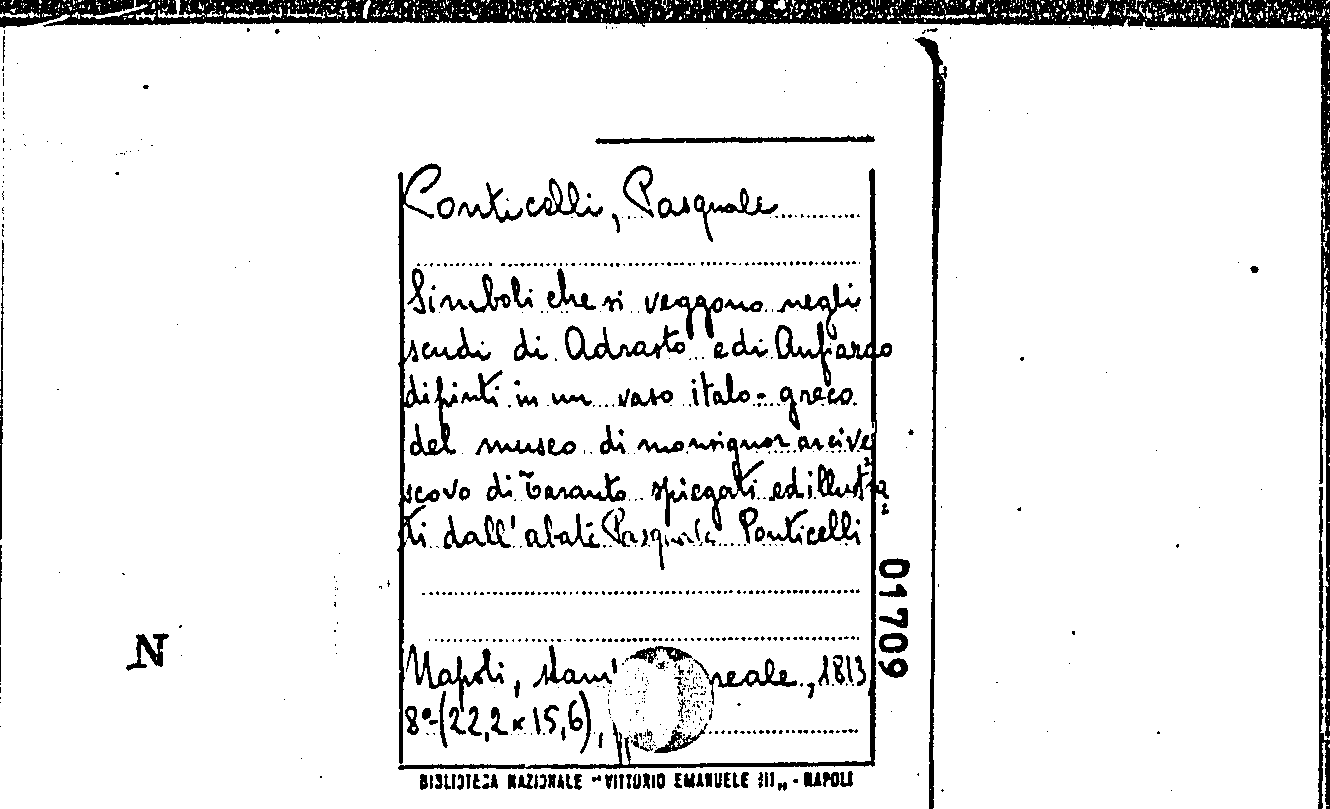 Ponticelli, Pasquale
Simboli che si veggono negli
scudi di Adrasto e di Anfiarao
dipinti in un vaso italo-greco
del museo di monsignor arcive
scovo di Taranto spiegati ed illustra
ti dall'abate Pasquale Ponticelli
Napoli, stam reale, 1813
8°-(22,2×15,6),
BIBLIOTECA NAZIONALE "VITTORIO EMANUELE III„ - NAPOLI
01709
N